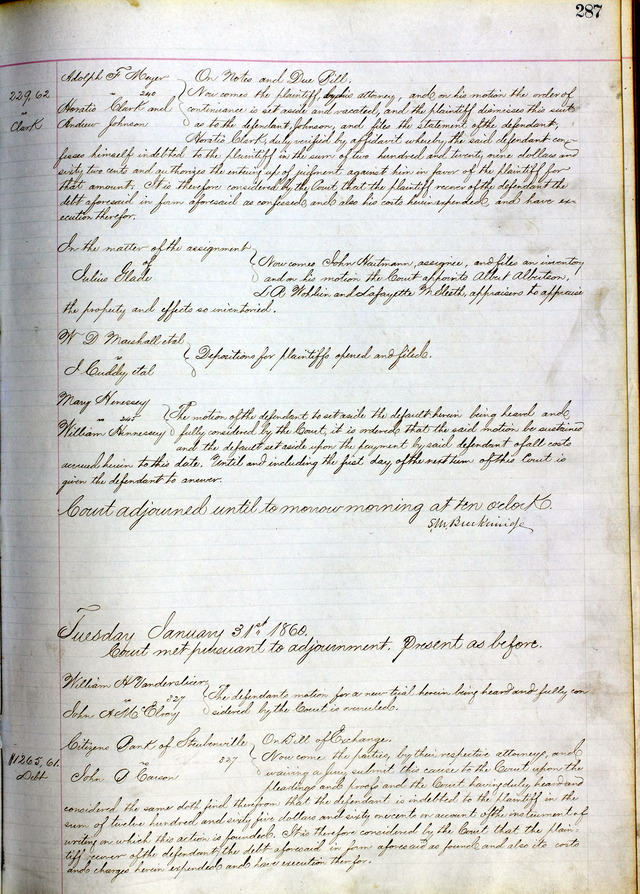 287
Adolph F Meyer On Notes and Due Bill.
229,62 vs 240 Now comes the plaintiff, by his attorney, and on his motion the order of
vs Horatio Clark and continuance is set aside and vacated, and the plaintiff dismisses this suit
Clark Andrew Johnson as to the defendant Johnson, and files the statement of the defendant,
Horatio Clark, duly verified by affidavit whereby the said defendant con-
fesses himself indebted to the plaintiff in the sum of two hundred and twenty nine dollars and
sixty two cents and authorizes the entering up of judgment against him in favor of the plaintiff for
that amount, It is therefore considered by the Court that the plaintiff recover of the defendant the
debt aforesaid in form aforesaid as confessed and also his costs herein expended and have ex-
ecution therefor.
In the matter of the assignment
of Now comes John Hartmann, assignee, and files an inventory
Julius Glade and on his motion the Court appoints Albert Albertson,
L. R. and Lafayette appraisers to appraise
the property and effects so inventoried.
W D Marshall etal
vs Depositions for plaintiffs opened and filed.
J Cuddy, etal
Mary Henessey The motion of the defendant to set aside the default herein being heard and
vs William Hennessey fully considered by the Court, it is ordered that the said motion be sustained
and the default set aside upon the payment by said defendant of all costs
accrued herein to this date. Until and including the first day of the next term of this Court is
given the defendant to answer.
Court adjourned until to morrow morning at ten oclock.
S. M. Breckinridge
Tuesday January 31st 1860.
Court met pursuant to adjournment. Present as before.
William H Vanderslice
vs 227 The defendants motion for a new trial herein being heard and fully con
John A McElroy sidered by the Court is overruled.
Citizens Bank of Steubenville On Bill of Exchange.
$1265,61. vs 227 Now come the parties, by their respective attorneys, and
Debt John A Carson waiving a jury, submit this cause to the Court upon the
pleadings and proof and the Court having duly heard and
considered the same doth find therefrom that the defendant is indebted to the plaintiff in the
sum of twelve hundred and sixty five dollars and sixty one cents on account of the instrument of
writing on which this action is founded. It is therefore considered by the Court that the plain-
tiff recover of the defendant the debt aforesaid in form aforesaid as found and also its costs
and charges herein expended and have execution therefor.